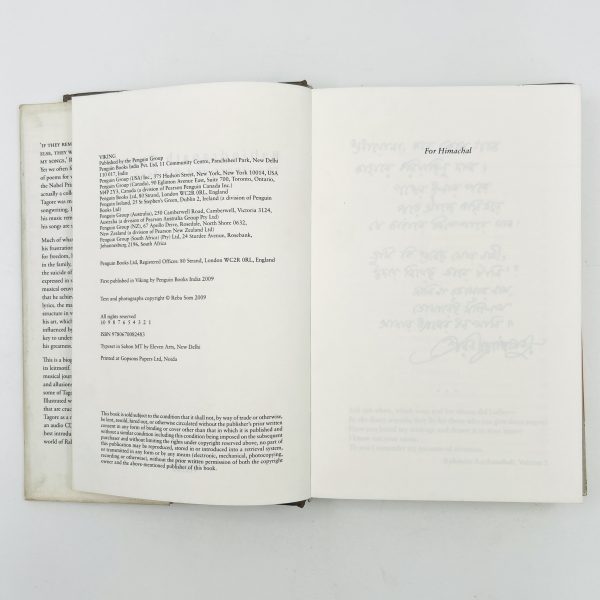 'IF THEY REM
ELSE, THEY W
MY SONGS,'
Yet we often
of poems for
the Nobel Pri
actually a coll
Tagore was m
songwriting.
his music rem
his songs are s
Much of what
his frustration
for freedom, l
in the family,
the suicide of
expressed in s
musical oeuv
that he achiev
lyrics, the ma
structure in w
his art, which
influenced by
key to under
his greatness.
This is a biog
its leitmotif.
musical jour
and allusion
some of Tag
Illustrated w
that are cruc
Tagore as a
an audio CD
best introdu
world of Rab
VIKING
Published by the Penguin Group
Penguin Books India Pvt. Ltd, 11 Community Centre, Panchsheel Park, New Delhi
110 017, India
Penguin Group (USA) Inc., 375 Hudson Street, New York, New York 10014, USA
Penguin Group (Canada), 90 Eglinton Avenue East, Suite 700, Toronto, Ontario,
M4P 2Y3, Canada (a division of Pearson Penguin Canada Inc.)
Penguin Books Ltd, 80 Strand, London WC2R 0RL, England
Penguin Ireland, 25 St Stephen's Green, Dublin 2, Ireland (a division of Penguin
Books Ltd)
Penguin Group (Australia), 250 Camberwell Road, Camberwell, Victoria 3124,
Australia (a division of Pearson Australia Group Pty Ltd)
Penguin Group (NZ), 67 Apollo Drive, Rosedale, North Shore 0632,
New Zealand (a division of Pearson New Zealand Ltd)
Penguin Group (South Africa) (Pty) Ltd, 24 Sturdee Avenue, Rosebank,
Johannesburg 2196, South Africa
Penguin Books Ltd, Registered Offices: 80 Strand, London WC2R 0RL, England
First published in Viking by Penguin Books India 2009
Text and photographs copyright © Reba Som 2009
All rights reserved
10 9 8 7 6 5 4 3 2 1
ISBN 9780670082483
Typeset in Sabon MT by Eleven Arts, New Delhi
Printed at Gopsons Papers Ltd, Noida
This book is sold subject to the condition that it shall not, by way of trade or otherwise,
be lent, resold, hired out, or otherwise circulated without the publisher's prior written
consent in any form of binding or cover other than that in which it is published and
without a similar condition including this condition being imposed on the subsequent
purchaser and without limiting the rights under copyright reserved above, no part of
this publication may be reproduced, stored in or introduced into a retrieval system,
or transmitted in any form or by any means (electronic, mechanical, photocopying,
recording or otherwise), without the prior written permission of both the copyright
owner and the above-mentioned publisher of this book.
For Himachal